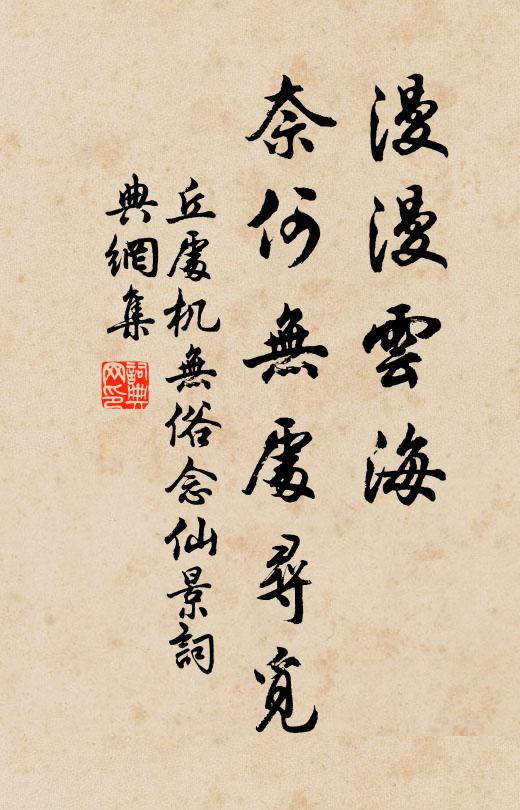 漫漫雲海
奈何無處尋覓
丘處机無俗念仙景詞
典網集
詞典網印